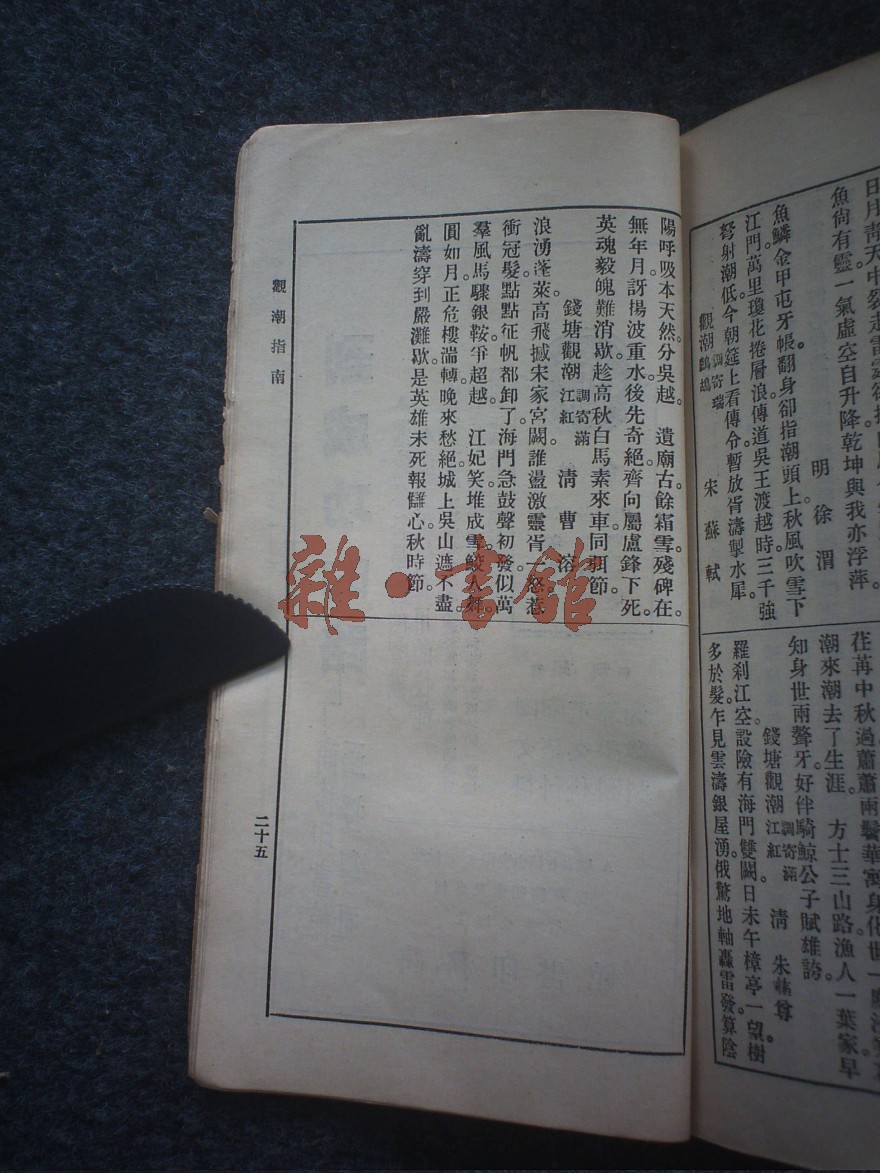 日月青天中裂走雷
魚尙有靈一氣虛空自升降乾坤與我亦浮萍。
明 徐 渭
魚鱗金甲屯牙帳。翻身卻指潮頭上。秋風吹雪下
江門。萬里瓊花捲層浪。傳道吳王渡越時三千強
弩射潮低。今朝筵上看傳令。暫放胥濤掣水犀。
觀潮 調寄瑞鷓鴣 宋 蘇 軾
荏苒中秋過蕭蕭兩鬢華寓身化世一
潮來潮去了生涯。 方士三山路漁人一葉家早
知身世兩聱牙。好伴騎鯨公子賦雄誇。
錢塘觀潮 調寄滿江紅 淸 朱彝尊
羅刹江空。設險有海門雙闕。日未午樟亭一望樹
多於髮。乍見雲濤銀屋湧。俄驚地軸轟雷發。算陰
陽呼吸本天然。分吳越。 遺廟古。餘霜雪。殘碑在。
無年月。訝揚波重水後先奇絕。齊向屬盧鋒下死。
英魂毅魄難消歇。趁高秋白馬素來車。同朝節。
錢塘觀潮 調寄滿江紅 淸 曹 溶
浪湧蓬萊。高飛撼宋家宮闕。誰盪激靈胥一怒。惹
衝冠髮。點點征帆都卸了。海門急鼓聲初發。似萬
羣風馬驟銀鞍。爭超越。 江妃笑。堆成雪。鮫人舞。
圓如月。正危樓湍轉。晚來愁絕。城上吳山遮不盡。
亂濤穿到嚴灘歇。是英雄未死報讎心。秋時節。
觀潮指南
二十五
雜·書館